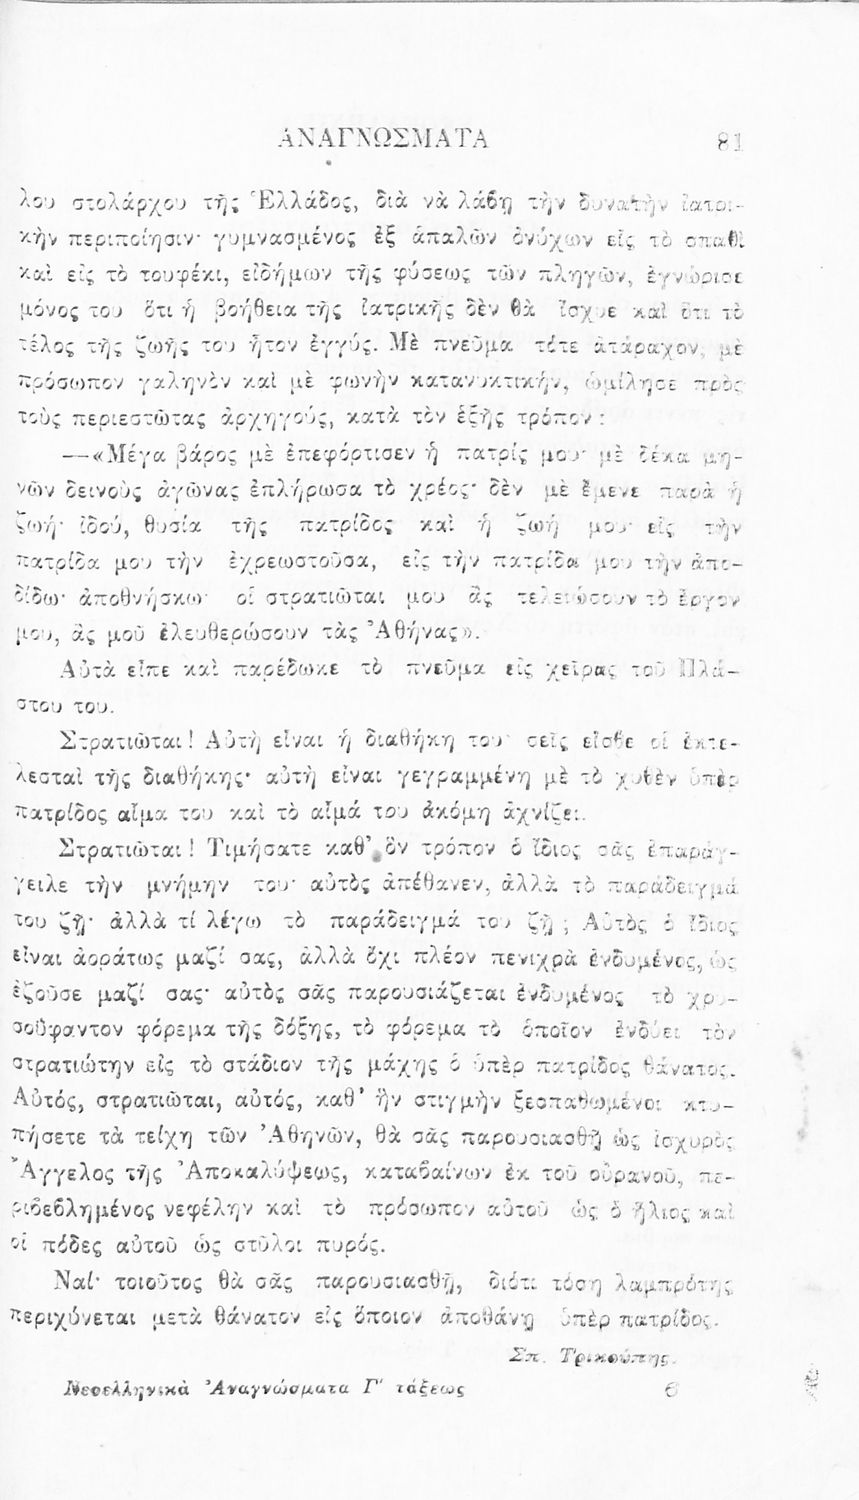 ΑΝΑΓΝΩΣΜΑΤΑ 81
λου στολάρχου τῆς Ἑλλάδος, διὰ νὰ λάβῃ τὴν δυνατὴν ἰατρι-
κὴν περιποίησιν· γυμνασμένος ἐξ ἁπαλῶν ὀνύχων εἰς τὸ σπαθὶ
καὶ εἰς τὸ τουφέκι, εἰδήμων τῆς φύσεως τῶν πληγῶν, ἐγνώρισε
μόνος του ὅτι ἡ βοήθεια τῆς ἰατρικῆς δὲν θὰ ἴσχυε καὶ ὅτι τὸ
τέλος τῆς ζωῆς του ἦτον ἐγγύς. Μὲ πνεῦμα τότε ἀτάραχον, μὲ
πρόσωπον γαληνὸν καὶ μὲ φωνὴν κατανυκτικήν, ὡμίλησε πρὸς
τοὺς περιεστῶτας ἀρχηγούς, κατὰ τὸν ἑξῆς τρόπον :
—«Μέγα βάρος μὲ ἐπεφόρτισεν ἡ πατρίς μου· μὲ δέκα μη-
νῶν δεινοὺς ἀγῶνας ἐπλήρωσα τὸ χρέος· δὲν μὲ ἔμενε παρὰ ἡ
ζωή· ἰδού, θυσία τῆς πατρίδος καὶ ἡ ζωή μου· εἰς τὴν
πατρίδα μου τὴν ἐχρεωστοῦσα, εἰς τὴν πατρίδα μου τὴν ἀπο-
δίδω· ἀποθνήσκω· οἱ στρατιῶται μου ἂς τελειώσουν τὸ ἔργον
μου, ἂς μοῦ ἐλευθερώσουν τὰς Ἀθήνας».
Αὐτὰ εἶπε καὶ παρέδωκε τὸ πνεῦμα εἰς χεῖρας τοῦ Πλά-
στου του.
Στρατιῶται! Αὐτὴ εἶναι ἡ διαθήκη του· σεῖς εἶσθε οἱ ἐκτε-
λεσταὶ τῆς διαθήκης· αὐτὴ εἶναι γεγραμμένη μὲ τὸ χυθὲν ὑπὲρ
πατρίδος αἷμα του καὶ τὸ αἷμά του ἀκόμη ἀχνίζει.
Στρατιῶται! Τιμήσατε καθ’ ὃν τρόπον ὁ ἴδιος σᾶς ἐπαράγ-
γειλε τὴν μνήμην του· αὐτὸς ἀπέθανεν, ἀλλὰ τὸ παράδειγμά
του ζῇ· ἀλλὰ τί λέγω τὸ παράδειγμά του ζῇ ; Αὐτὸς ὁ ἴδιος
εἶναι ἀοράτως μαζί σας, ἀλλὰ ὄχι πλέον πενιχρὰ ἐνδυμένος, ὡς
ἐζοῦσε μαζί σας· αὐτὸς σᾶς παρουσιάζεται ἐνδυμένος τὸ χρυ-
σοΰφαντον φόρεμα τῆς δόξης, τὸ φόρεμα τὸ ὁποῖον ἐνδύει τὸν
στρατιώτην εἰς τὸ στάδιον τῆς μάχης ὁ ὑπὲρ πατρίδος θάνατος.
Αὐτός, στρατιῶται, αὐτός, καθ’ ἣν στιγμὴν ξεσπαθωμένοι κτυ-
πήσετε τὰ τείχη τῶν Ἀθηνῶν, θὰ σᾶς παρουσιασθῇ ὡς ἰσχυρὸς
Ἄγγελος τῆς Ἀποκαλύψεως, καταβαίνων ἐκ τοῦ οὐρανοῦ, πε-
ριβεβλημένος νεφέλην καὶ τὸ πρόσωπον αὐτοῦ ὡς ὁ ἥλιος καὶ
οἱ πόδες αὐτοῦ ὡς στῦλοι πυρός.
Ναί· τοιοῦτος θὰ σᾶς παρουσιασθῇ, διότι τόση λαμπρότης
περιχύνεται μετὰ θάνατον εἰς ὅποιον ἀποθάνῃ ὑπὲρ πατρίδος.
Σπ. Τρικούπης.
Νεοελληνικὰ Ἀναγνώσματα Γ΄ τάξεως 6